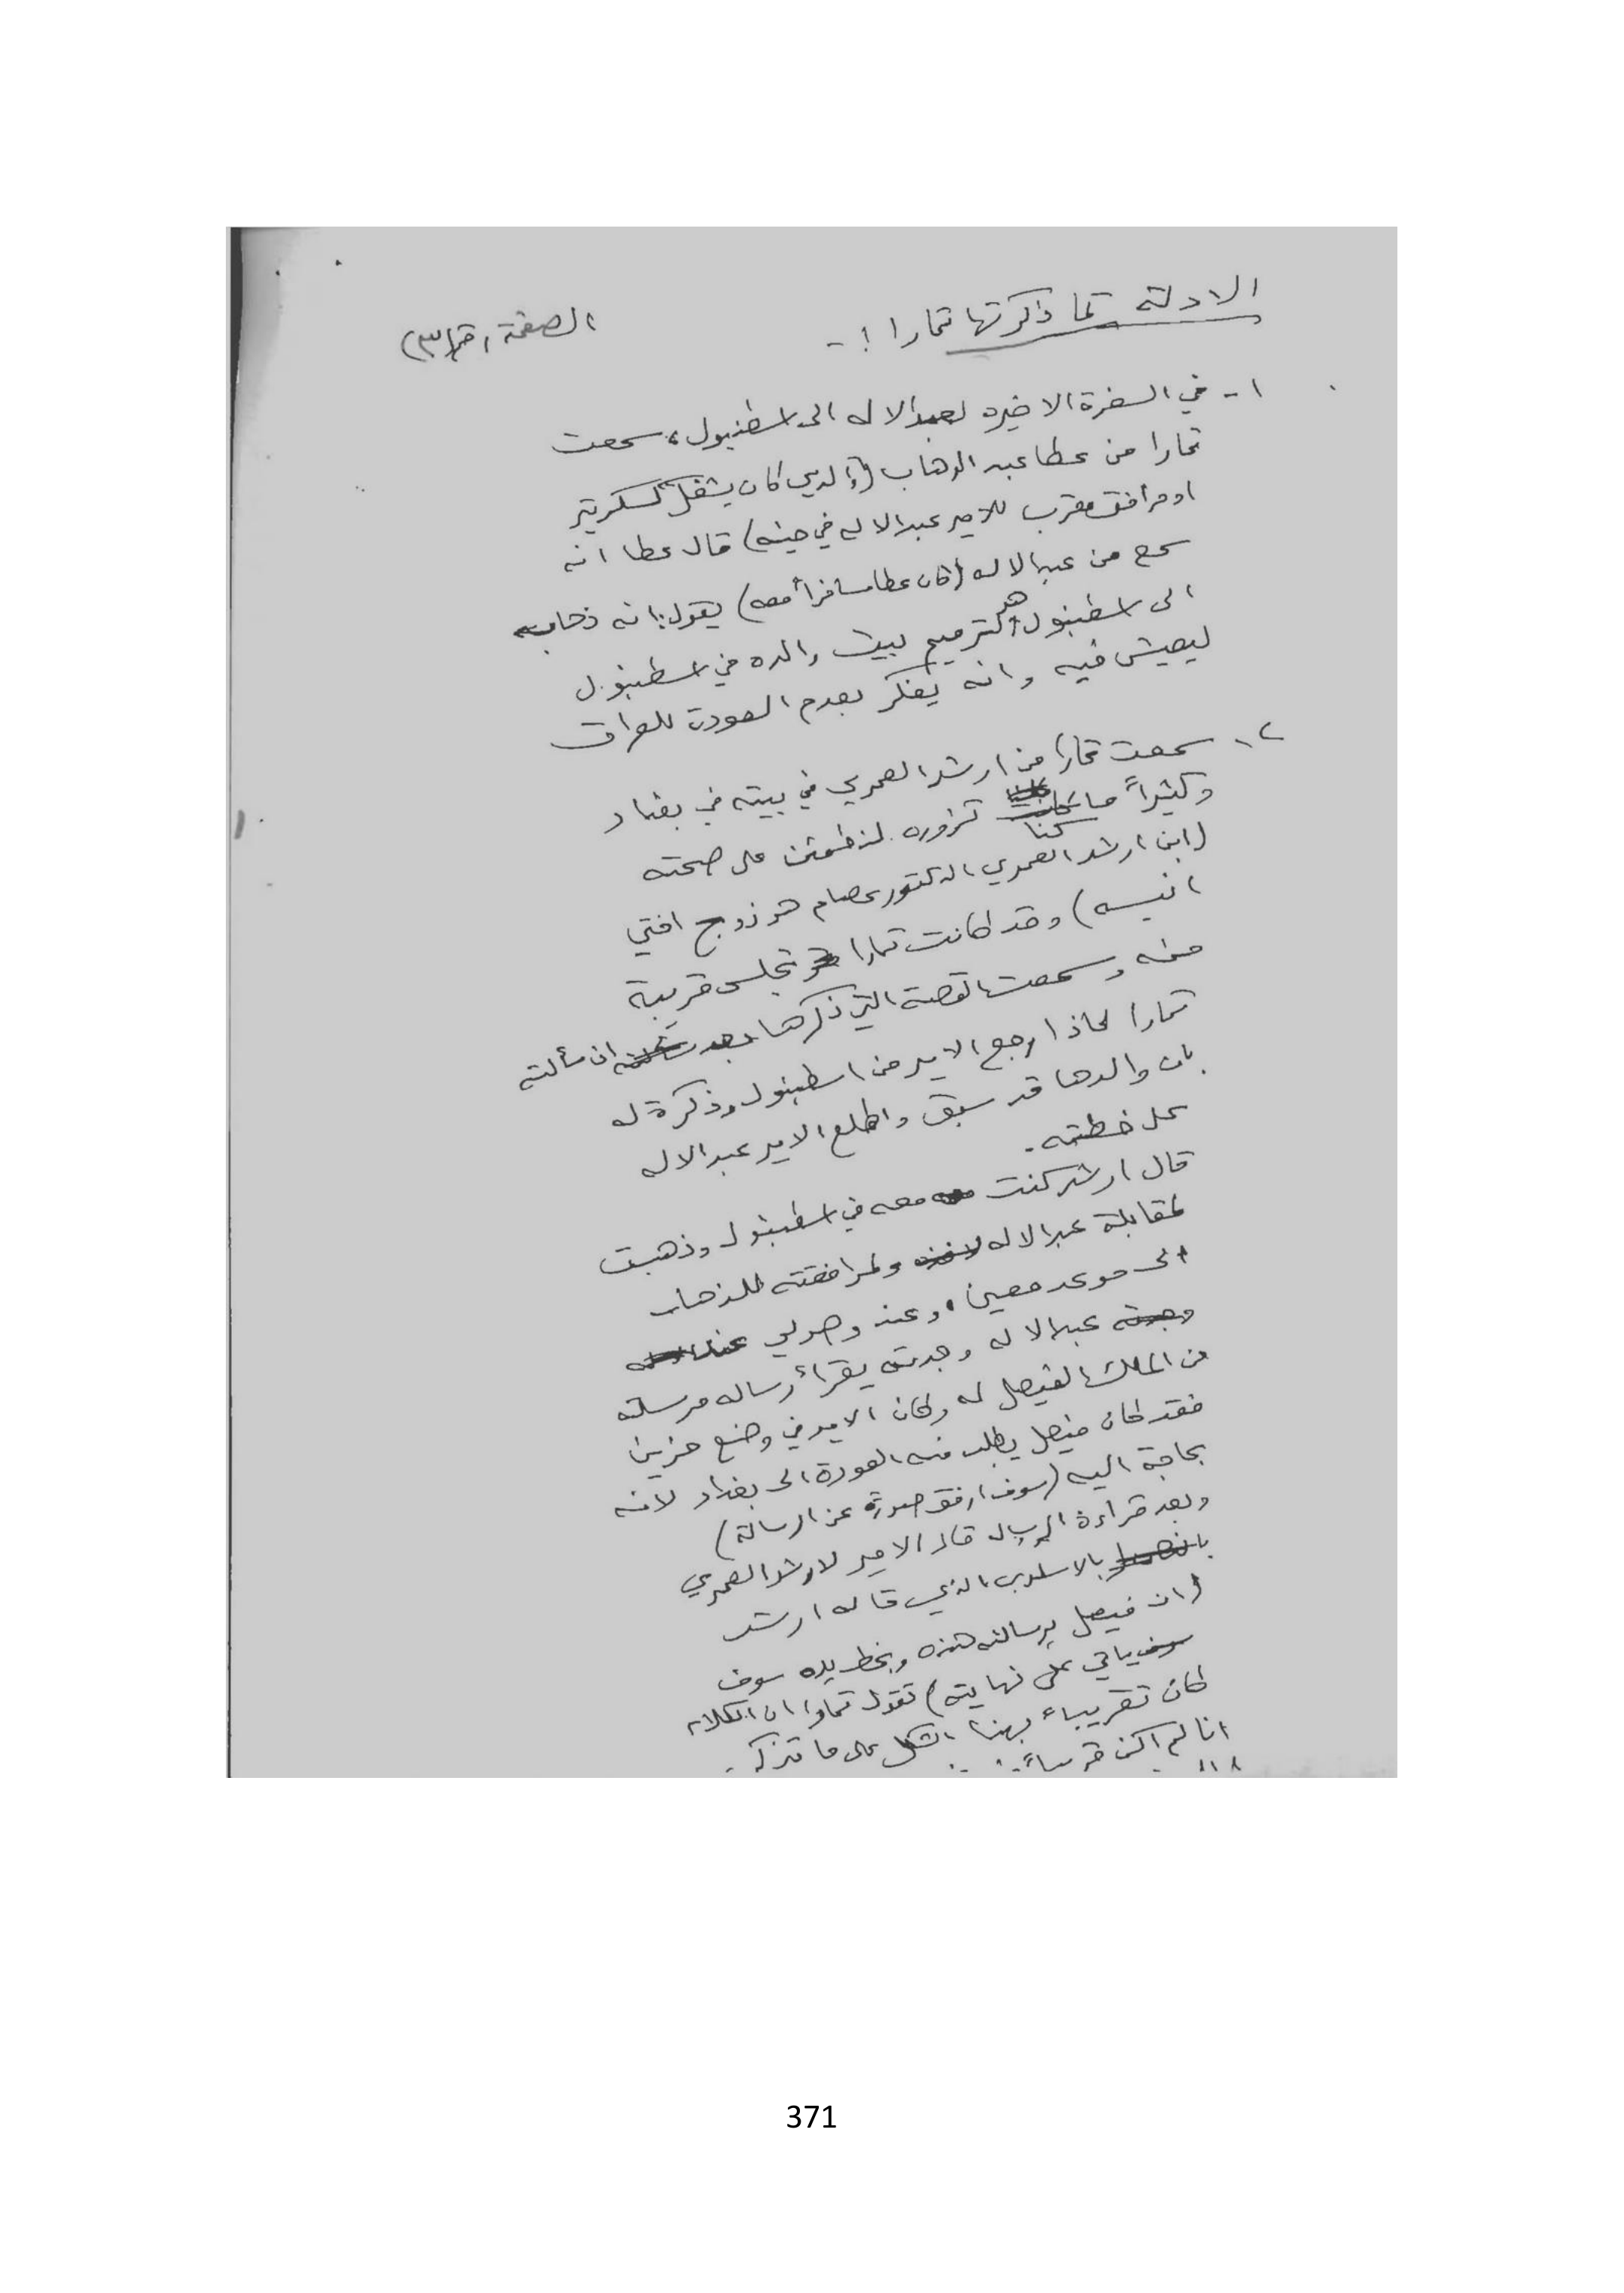 الصفحة رقم (٣)
الادلة كما ذكرتها تمارا :-
١- في السفرة الاخيره لعبدالاله الى اسطنبول، سمعت
تمارا من عطا عبد الوهاب (والذي كان يشغل كسكرتير
او مرافق مقرب للامير عبدالاله في حينه) قال عطا انه
سمع من عبدالاله (كان عطا مسافراً معه) يقول: انه ذهابه
الى اسطنبول هو لترميم بيت والده في اسطنبول
ليعيش فيه وانه يفكر بعدم العودة للعراق
٢- سمعت تمارا من ارشد العمري في بيته في بغداد
وكثيراً ما كنا نزوره لنطمئن على صحته
(ابن ارشد العمري الدكتور عصام هو زوج اختي
انيسه) وقد كانت تمارا تجلس قريبة
منه وسمعت القصة التي ذكرها بعد ان سألته
تمارا لماذا رجع الامير من اسطنبول وذكرة له
بان والدها قد سبق واطلع الامير عبدالاله
على خطته.
قال ارشد كنت معه في اسطنبول وذهبت
لمقابلة عبدالاله ولمرافقته للذهاب
الى موعد معين، وعند وصولي
عبدالاله وجدته يقرأ رساله مرسلة
من الملك الفيصل له وكان الامير في وضع حزين
فقد كان فيصل يطلب منه العودة الى بغداد لانه
بحاجة اليه (سوف ارفق صورة عن الرسالة)
وبعد قراءة الرسالة قال الامير لارشد العمري
بالاسلوب الذي قاله ارشد
(ان فيصل برسالته هذه وبخط يده سوف
ياتي على نهايته) تقول تمارا ان الكلام
كان تقريباً بهذا الشكل على ما تذكر.
انا لم اكن قريباً
371